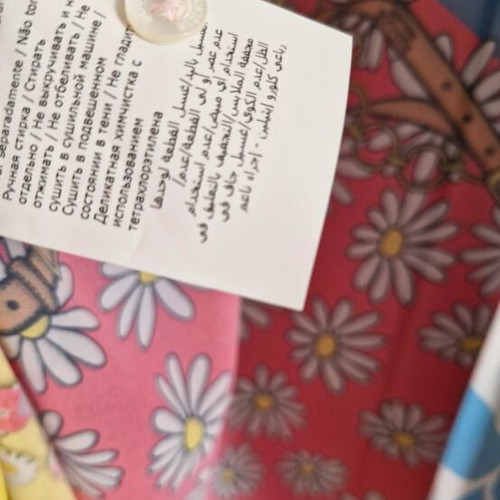 separadamente / Não
Ручная стирка / Стирать
отдельно / Не выкручивать и н
отжимать / Не отбеливать / Не
сушить в сушильной машине /
Сушить в подвешенном
состоянии в тени / Не гладит
Деликатная химчистка с
использованием
тетрахлорэтилена
غسيل باليد/غسل القطعة لوحدها
/عدم عصر او لي القطعة/عدم
استخدام اي مبيض/عدم استخدام
مجففة الملابس/التجفيف بالتعليق في
الظل/عدم الكوي/غسيل جاف في
رباعي كلورو إيثيلين - إجراء ناعم